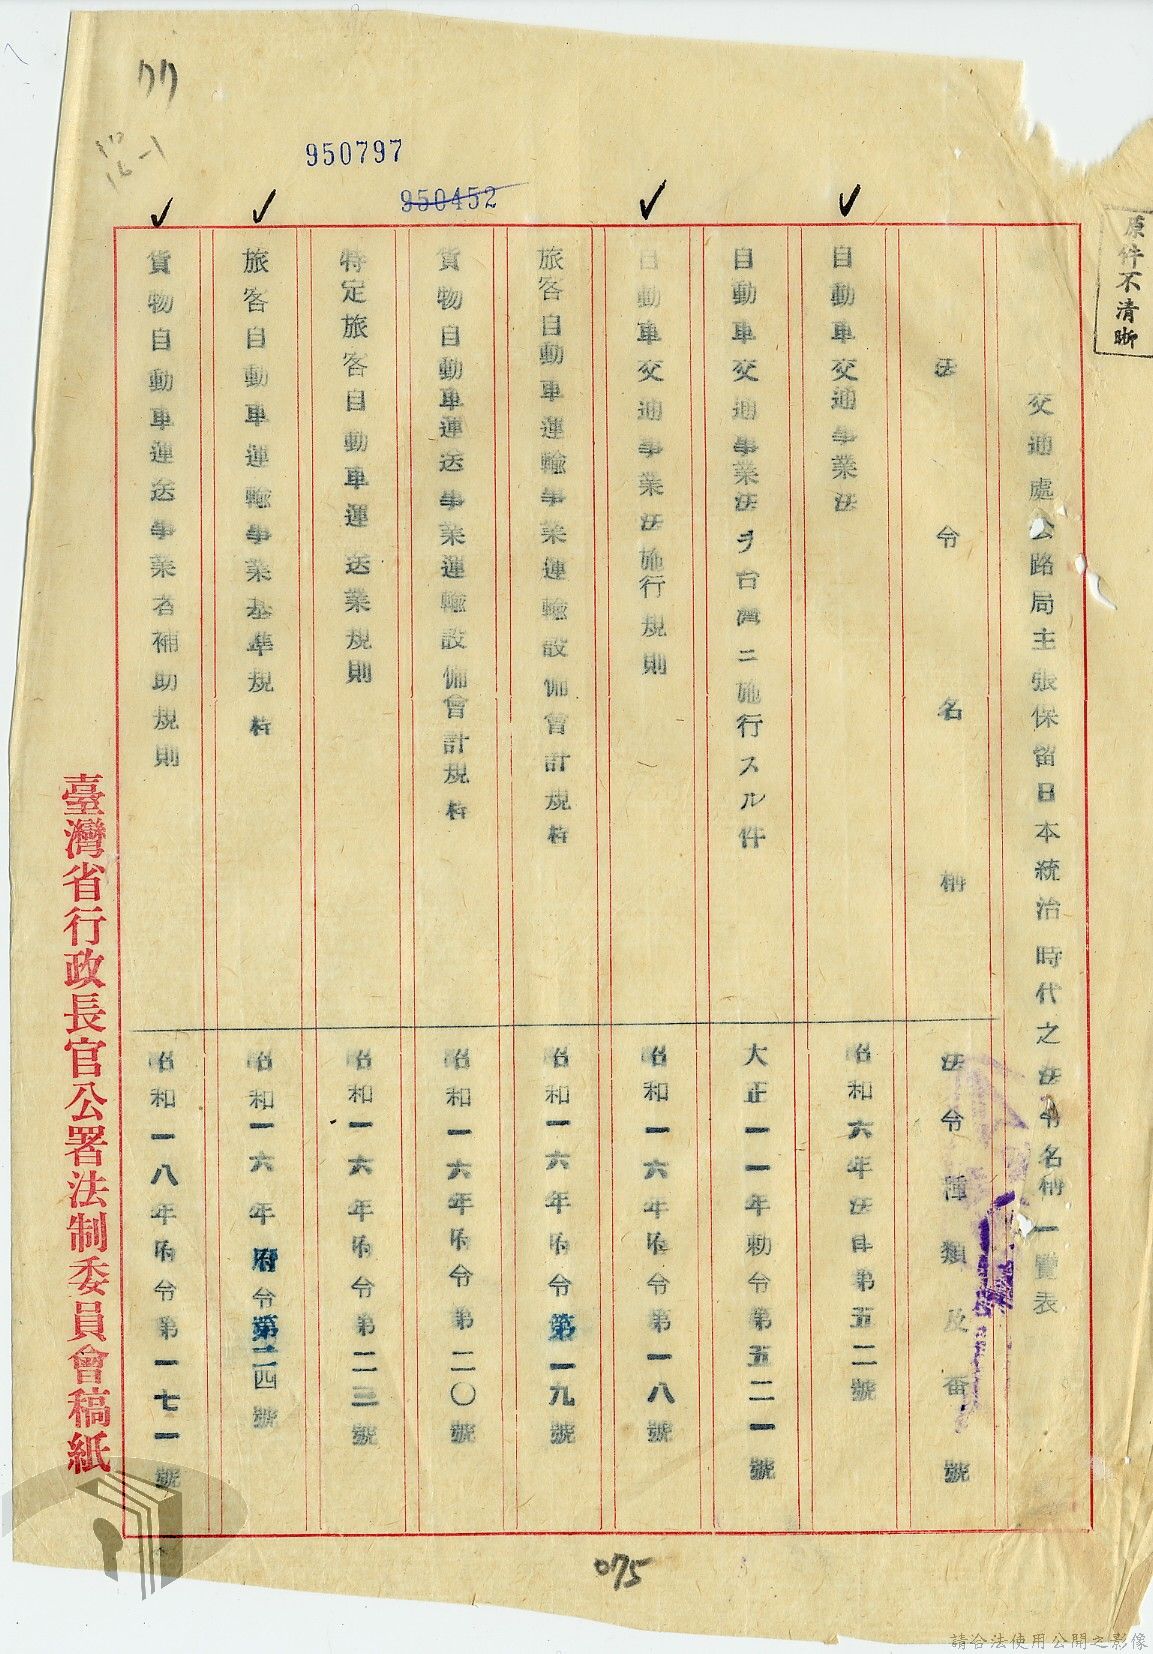 77
950797
950452
原件不清晰
交通處公路局主張保留日本統治時代之法令名稱一覽表
法令名稱 法令種類及番號
自動車交通事業法 昭和六年法律第五二號
自動車交通事業法ヲ台灣ニ施行スル件 大正一一年勅令第五二一號
自動車交通事業法施行規則 昭和一六年府令第一八號
旅客自動車運輸事業運輸設備會計規程 昭和一六年府令第一九號
貨物自動車運送事業運輸設備會計規程 昭和一六年府令第二〇號
特定旅客自動車運送業規則 昭和一六年府令第二三號
旅客自動車運輸事業基準規程 昭和一六年府令第二四號
貨物自動車運送事業者補助規則 昭和一八年府令第一七一號
臺灣省行政長官公署法制委員會稿紙
075
請合法使用公開之影像